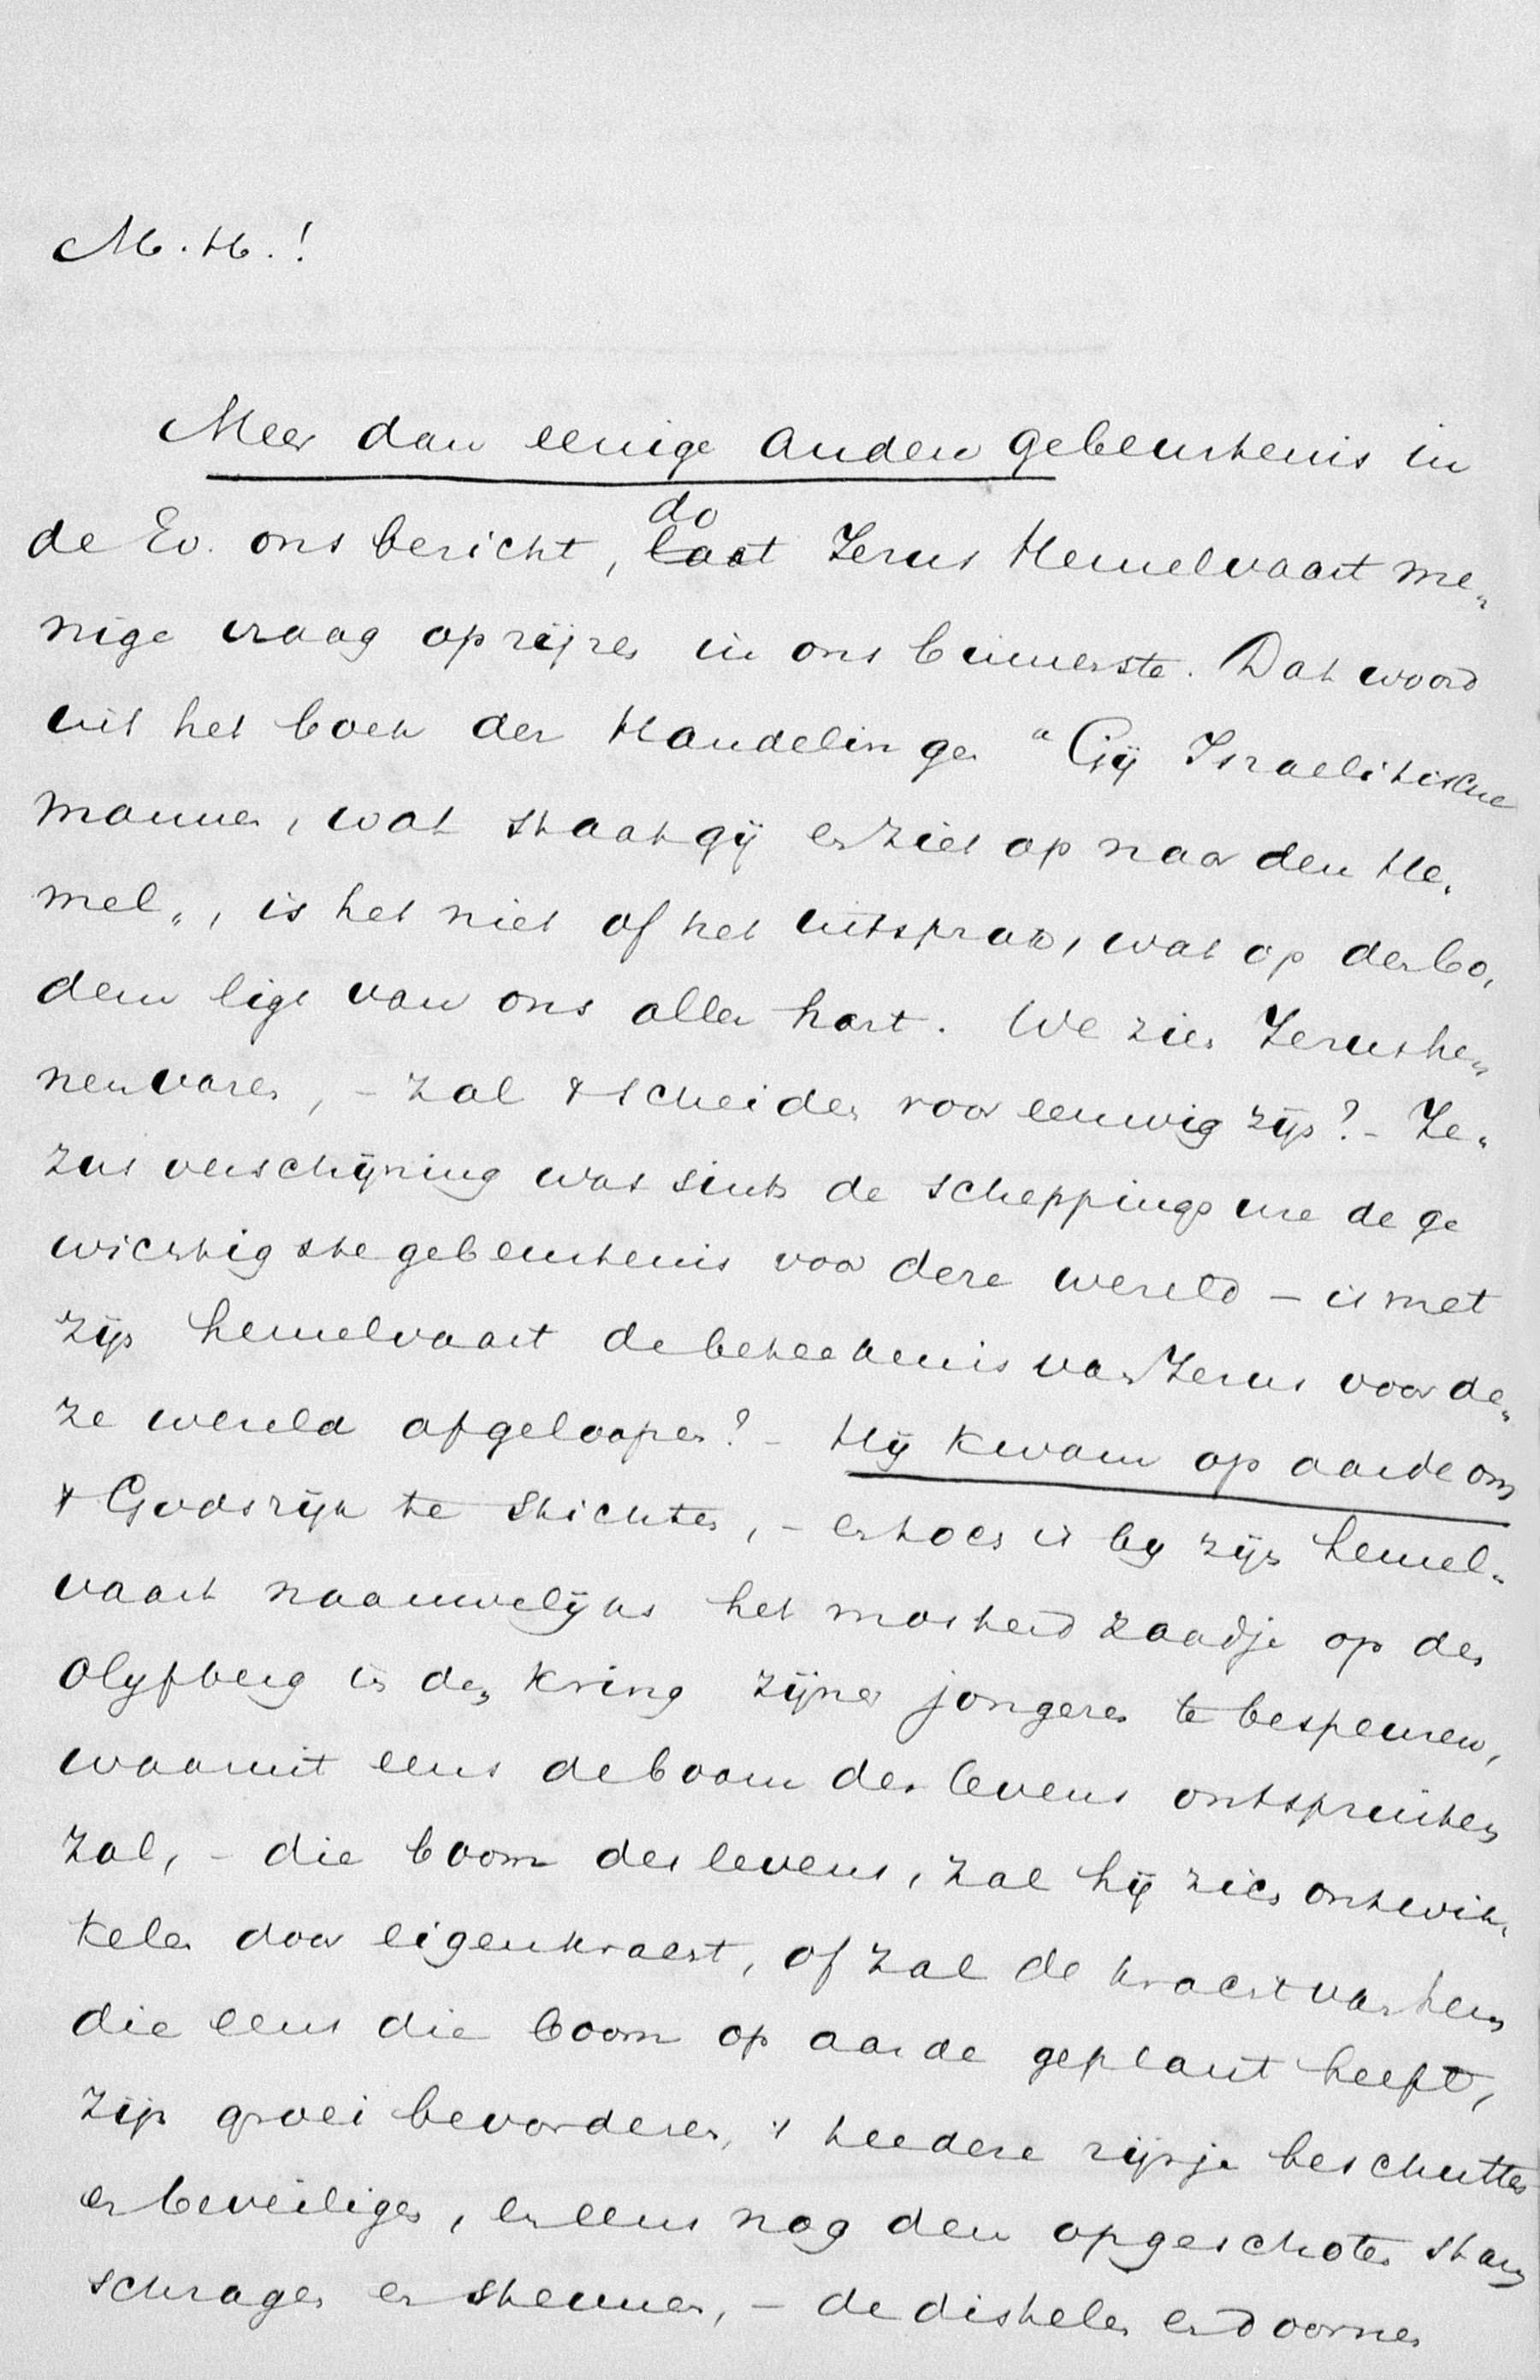 M. H.!
Meer dan eenige andere gebeurtenis in
de Ev. ons bericht, do laat Jezus Hemelvaart me„
nige vraag oprijzen in ons binnenste. Dat woord
uit het boek der Handelingen "Gij Israelitische
mannen, wat staat gij en ziet op naar den He„
mel„, is het niet of het uitsprak, wat op den bo„
dem ligt van ons aller hart. We zien Jezus he„
nenvaren, – zal 't scheiden voor eeuwig zijn? – Je„
zus verschijning was sints de scheppings ure de ge
wichtigste gebeurtenis voor deze wereld – is met
zijn hemelvaart de beteekenis van Jezus voor de„
ze wereld afgeloopen? – Hij kwam op aarde om
't Godsrijk te stichten, – en toch is bij zijn hemel„
vaart naauwelijks het mosterd zaadje op den
Olijfberg in den kring zijner jongeren te bespeuren,
waaruit eens de boom des levens ontspruiten
zal, – die boom des levens, zal hij zich ontwik„
kelen door eigen kracht, of zal de kracht van hem
die eens die boom op aarde geplant heeft,
zijn groei bevorderen, 't teedere rijsje beschutten
en beveiligen, en eens nog den opgeschoten stam
schragen en steunen, – de distelen en doornen